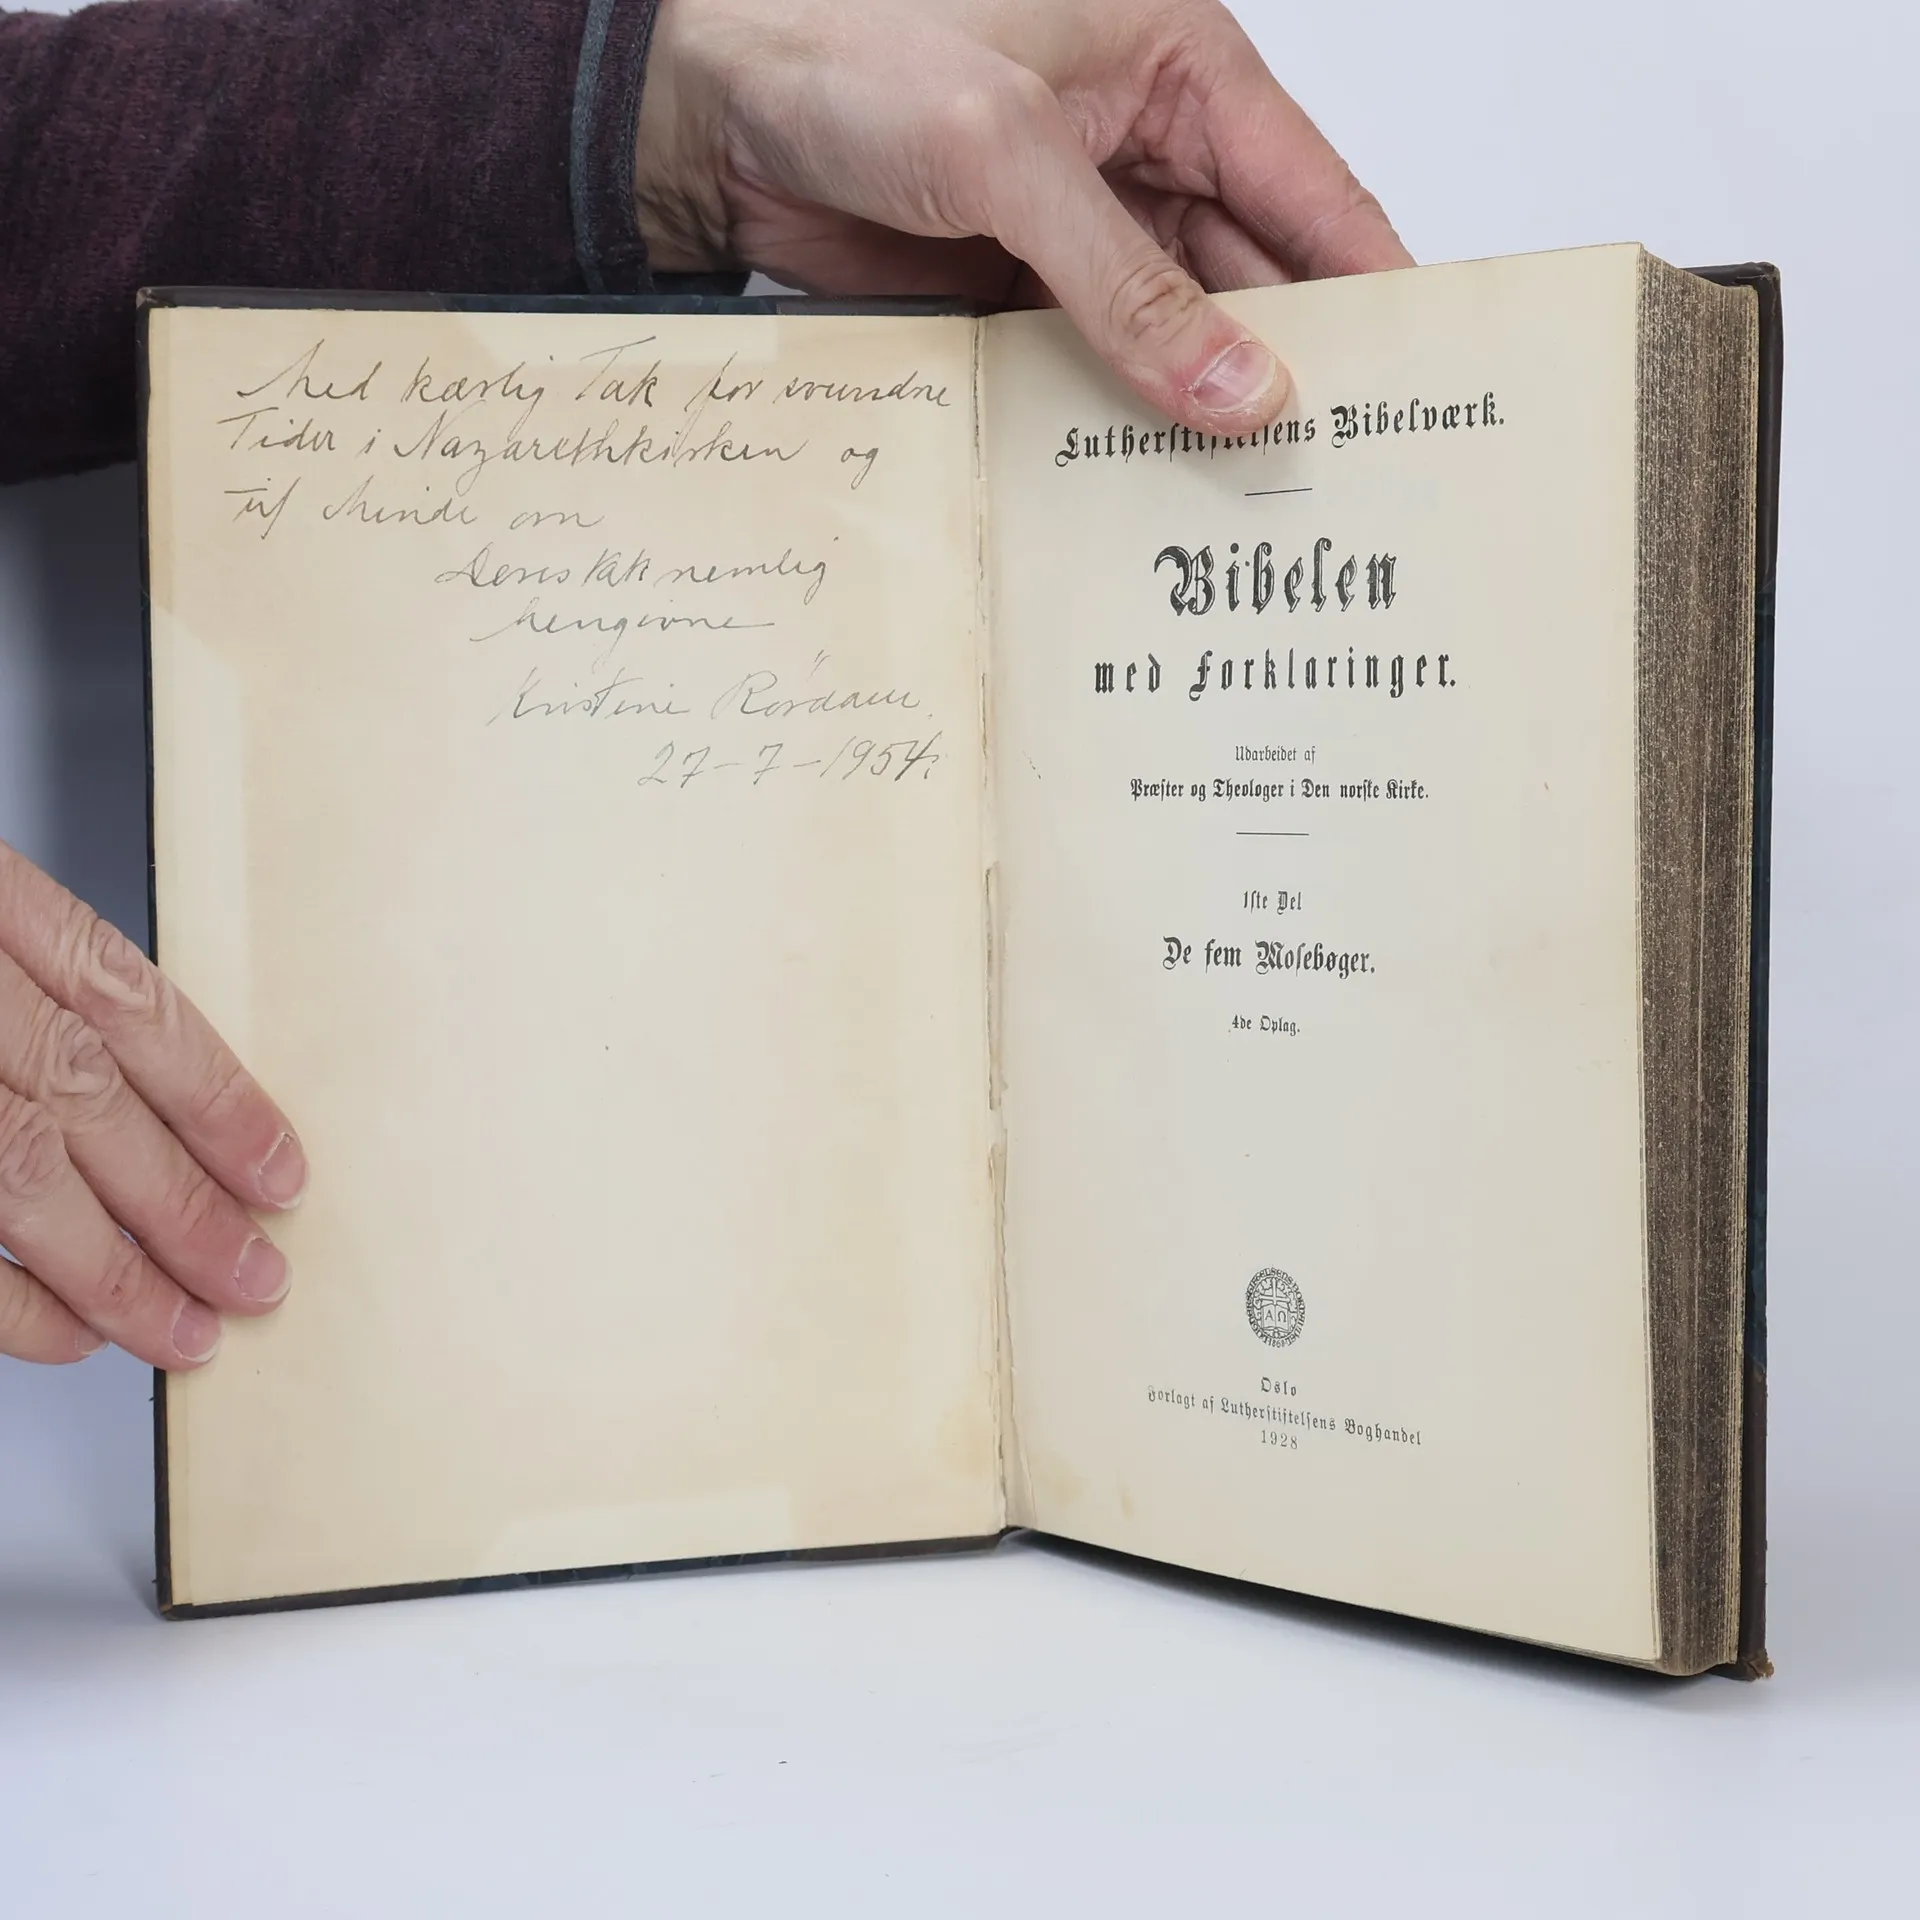 Med kærlig Tak for svundne
Tider i Nazarethkirken og
til Minde om
Deres taknemlig
hengivne
Kristine Rørdam.
27-7-1954.
Lutherstiftelsens Bibelværk.
Bibelen
med Forklaringer.
Udarbeidet af
Præster og Theologer i Den norske Kirke.
1ste Del
De fem Mosebøger.
4de Oplag.
Α Ω
1868
Oslo
Forlagt af Lutherstiftelsens Boghandel
1928